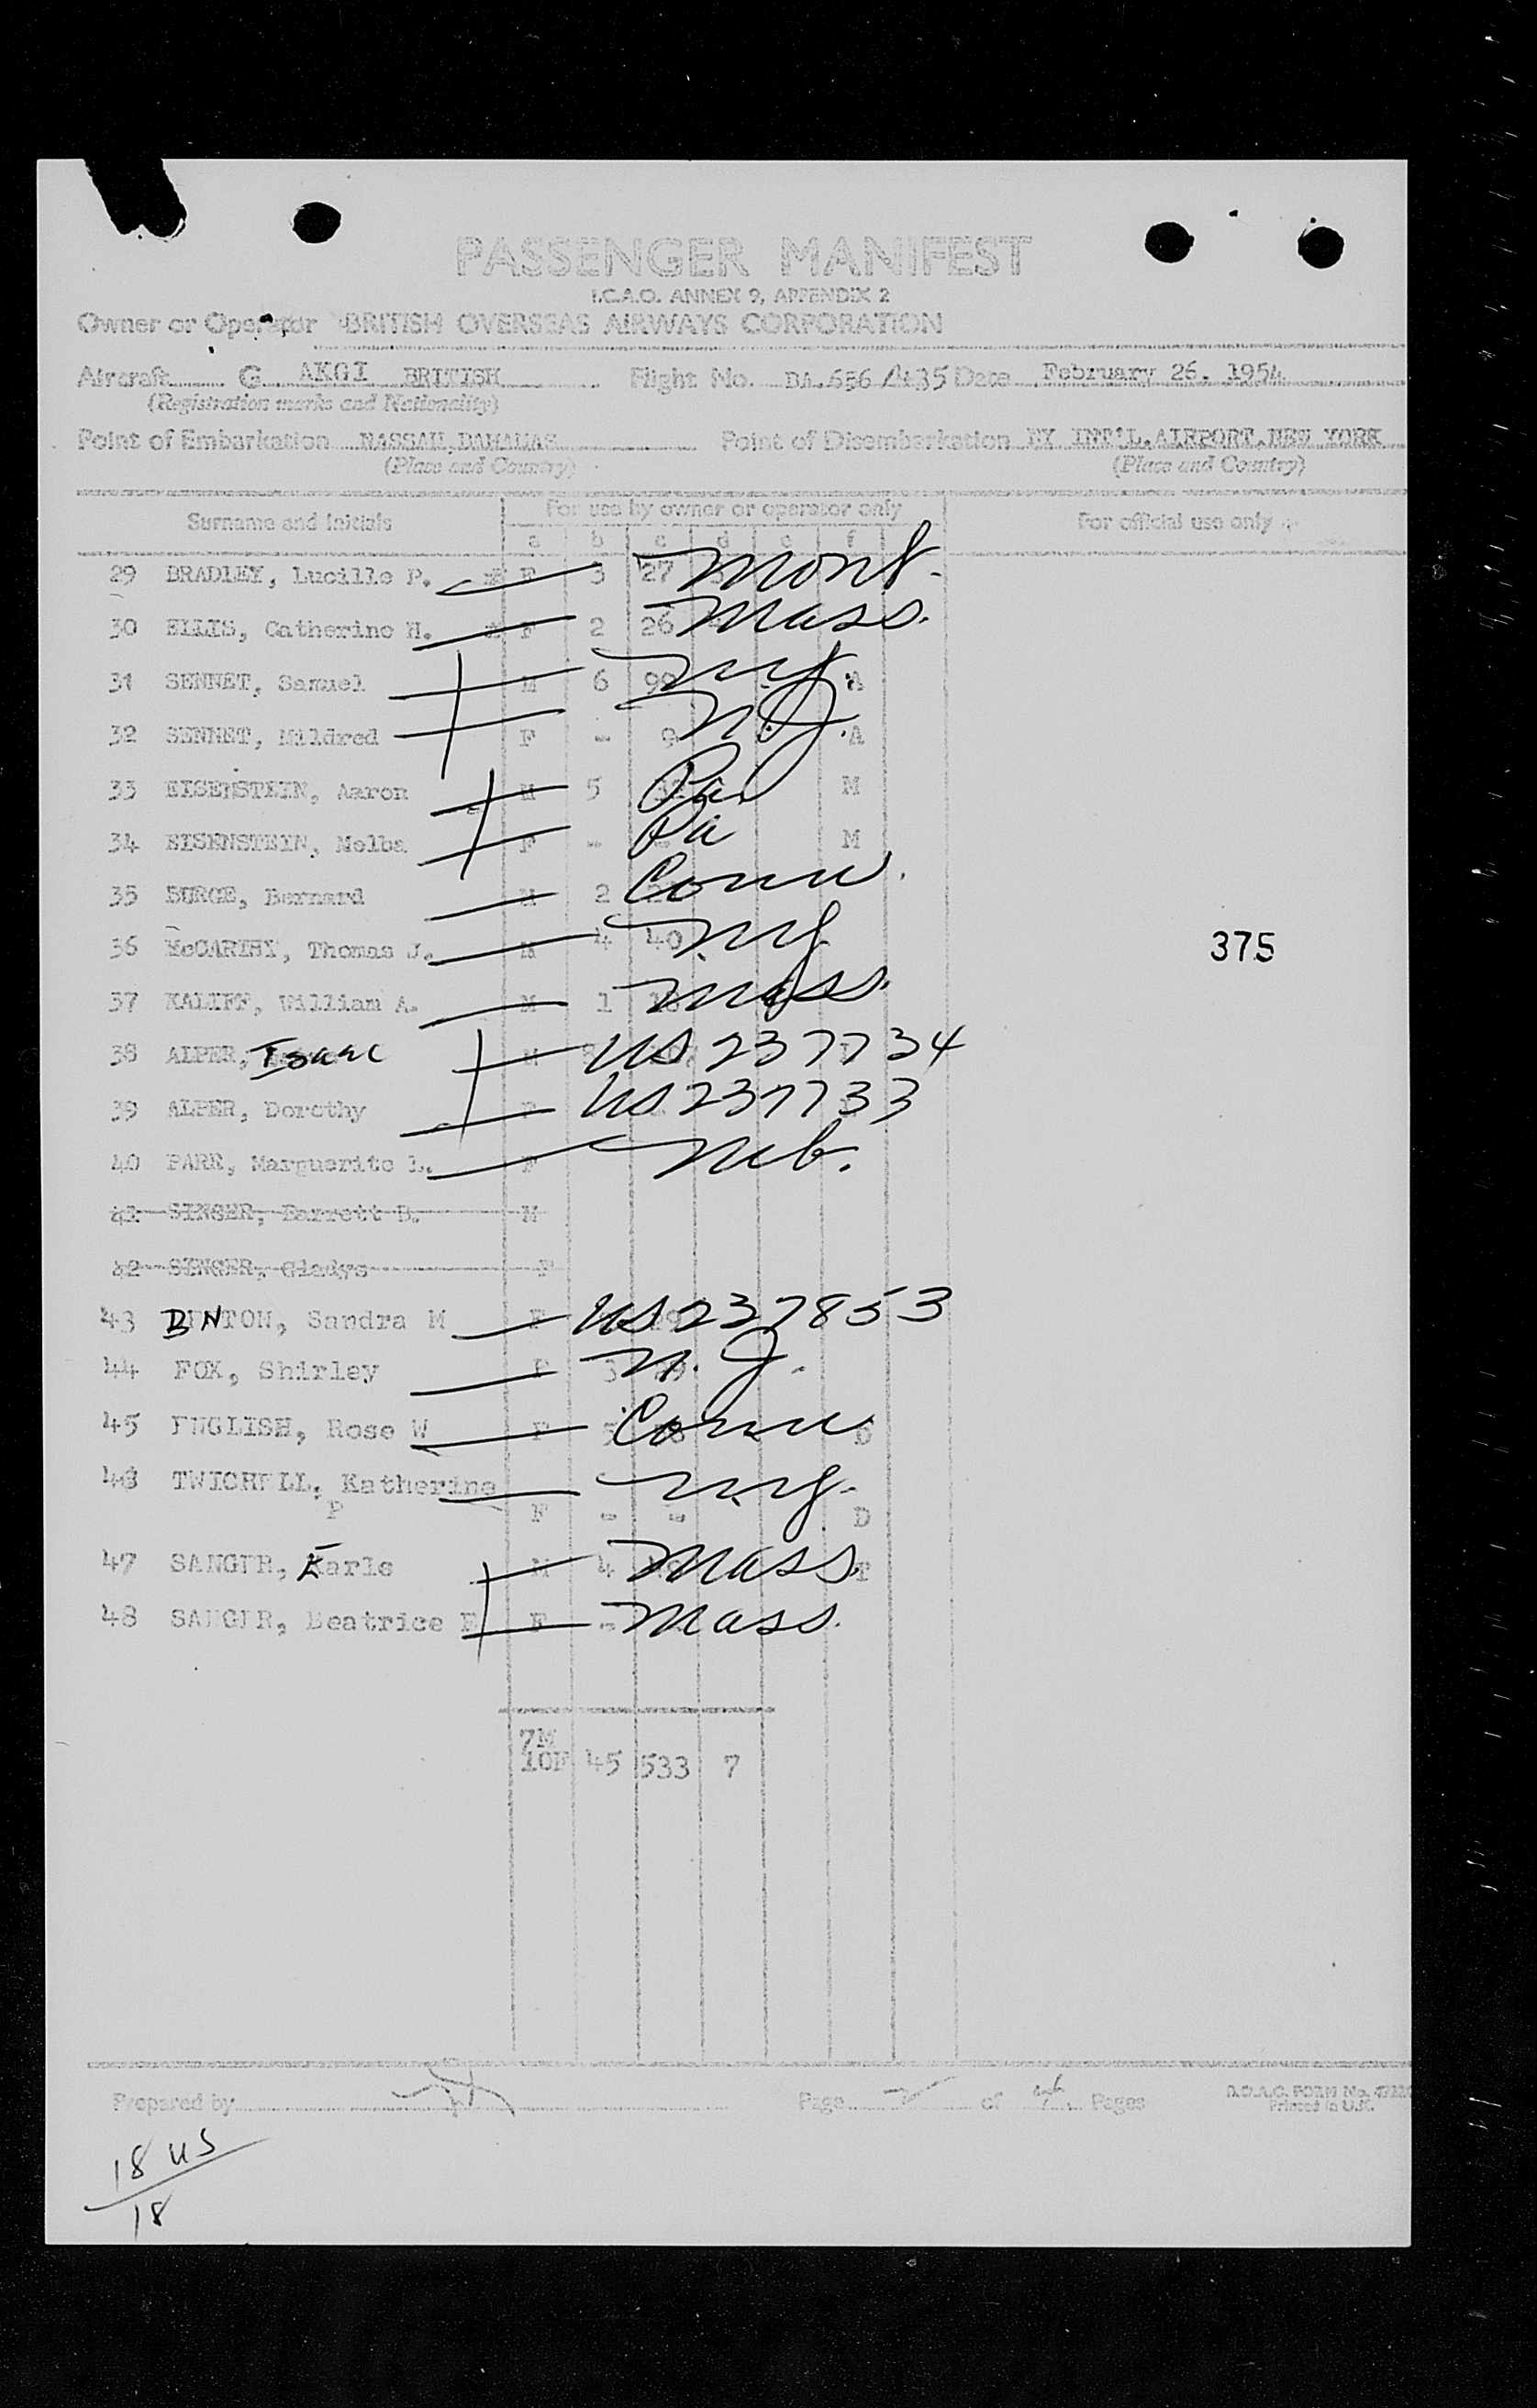 PASSENGER MANIFEST
I.C.A.O. ANNEX 9, APPENDIX 2
Owner or Operator BRITISH OVERSEAS AIRWAYS CORPORATION
Aircraft G AKGI BRITISH Flight No. BA.656/435 Date February 26. 1954
(Registration marks and Nationality)
Point of Embarkation NASSAU, BAHAMAS Point of Disembarkation NY INT'L.AIRPORT.NEW YORK
(Place and Country) (Place and Country)
For use by owner or operator only
Surname and Initials For official use only
a b c d e f
29 BRADLEY, Lucille P. F 3 27 Mont.
30 ELLIS, Catherine H. F 2 26 Mass.
31 SENNET, Samuel M 6 99 N.Y. A
32 SENNET, Mildred F - N.J. A
33 EISENSTEIN, Aaron M 5 Pa M
34 EISENSTEIN, Melba F - Pa M
35 BURGE, Bernard M 2 Conn.
36 McCARTHY, Thomas J. M 4 40 N.Y. 375
37 KALIFF, William A. M 1 18 Mass.
38 ALPER, Isaac M US 237734
39 ALPER, Dorothy F US 237733
40 PARE, Marguerite L. F Neb.
41 SINGER, Barrett B. M
42 SINGER, Gladys F
43 BNTON, Sandra M F US 237853
44 FOX, Shirley F 3 N.J.
45 ENGLISH, Rose W F 5 Conn D
46 TWICHELL, Katherine N.Y.
P F - - D
47 SANGER, Karle M 4 Mass. T
48 SANGER, Beatrice E F - Mass.
7M
10F 45 533 7
Prepared by Page of Pages
B.O.A.C. FORM No.
Printed in U.K.
18 US
18